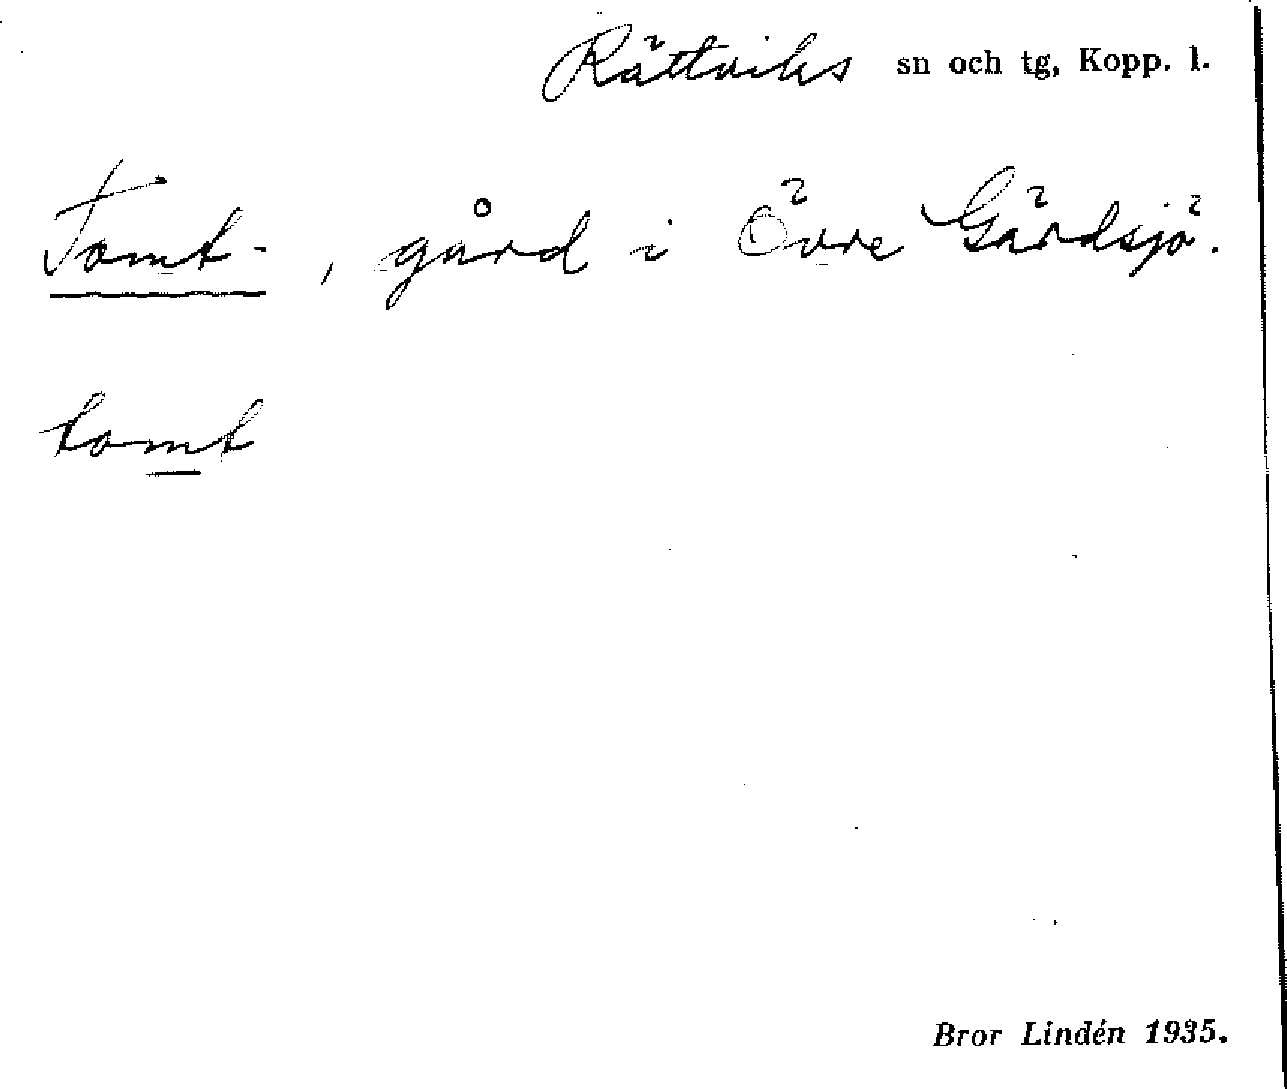 Rättviks sn och tg, Kopp. l.
Tomt-, gård i Övre Gärdsjö.
tomt
Bror Lindén 1935.